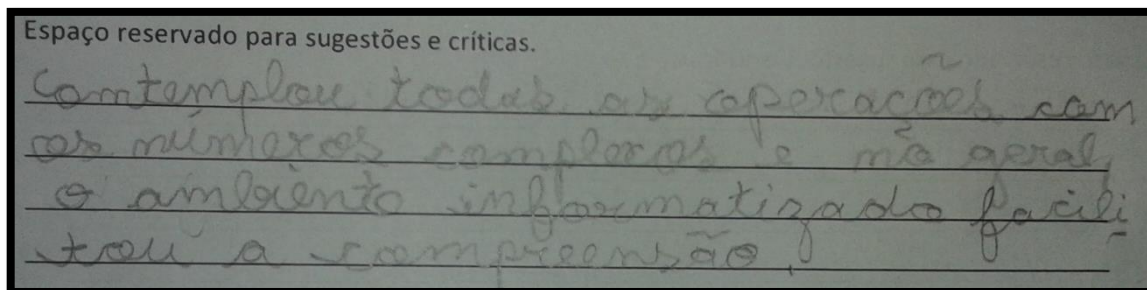 Espaço reservado para sugestões e críticas.
Contemplou todas as operações com
os números complexos e no geral,
o ambiente informatizado facili
tou a compreensão.